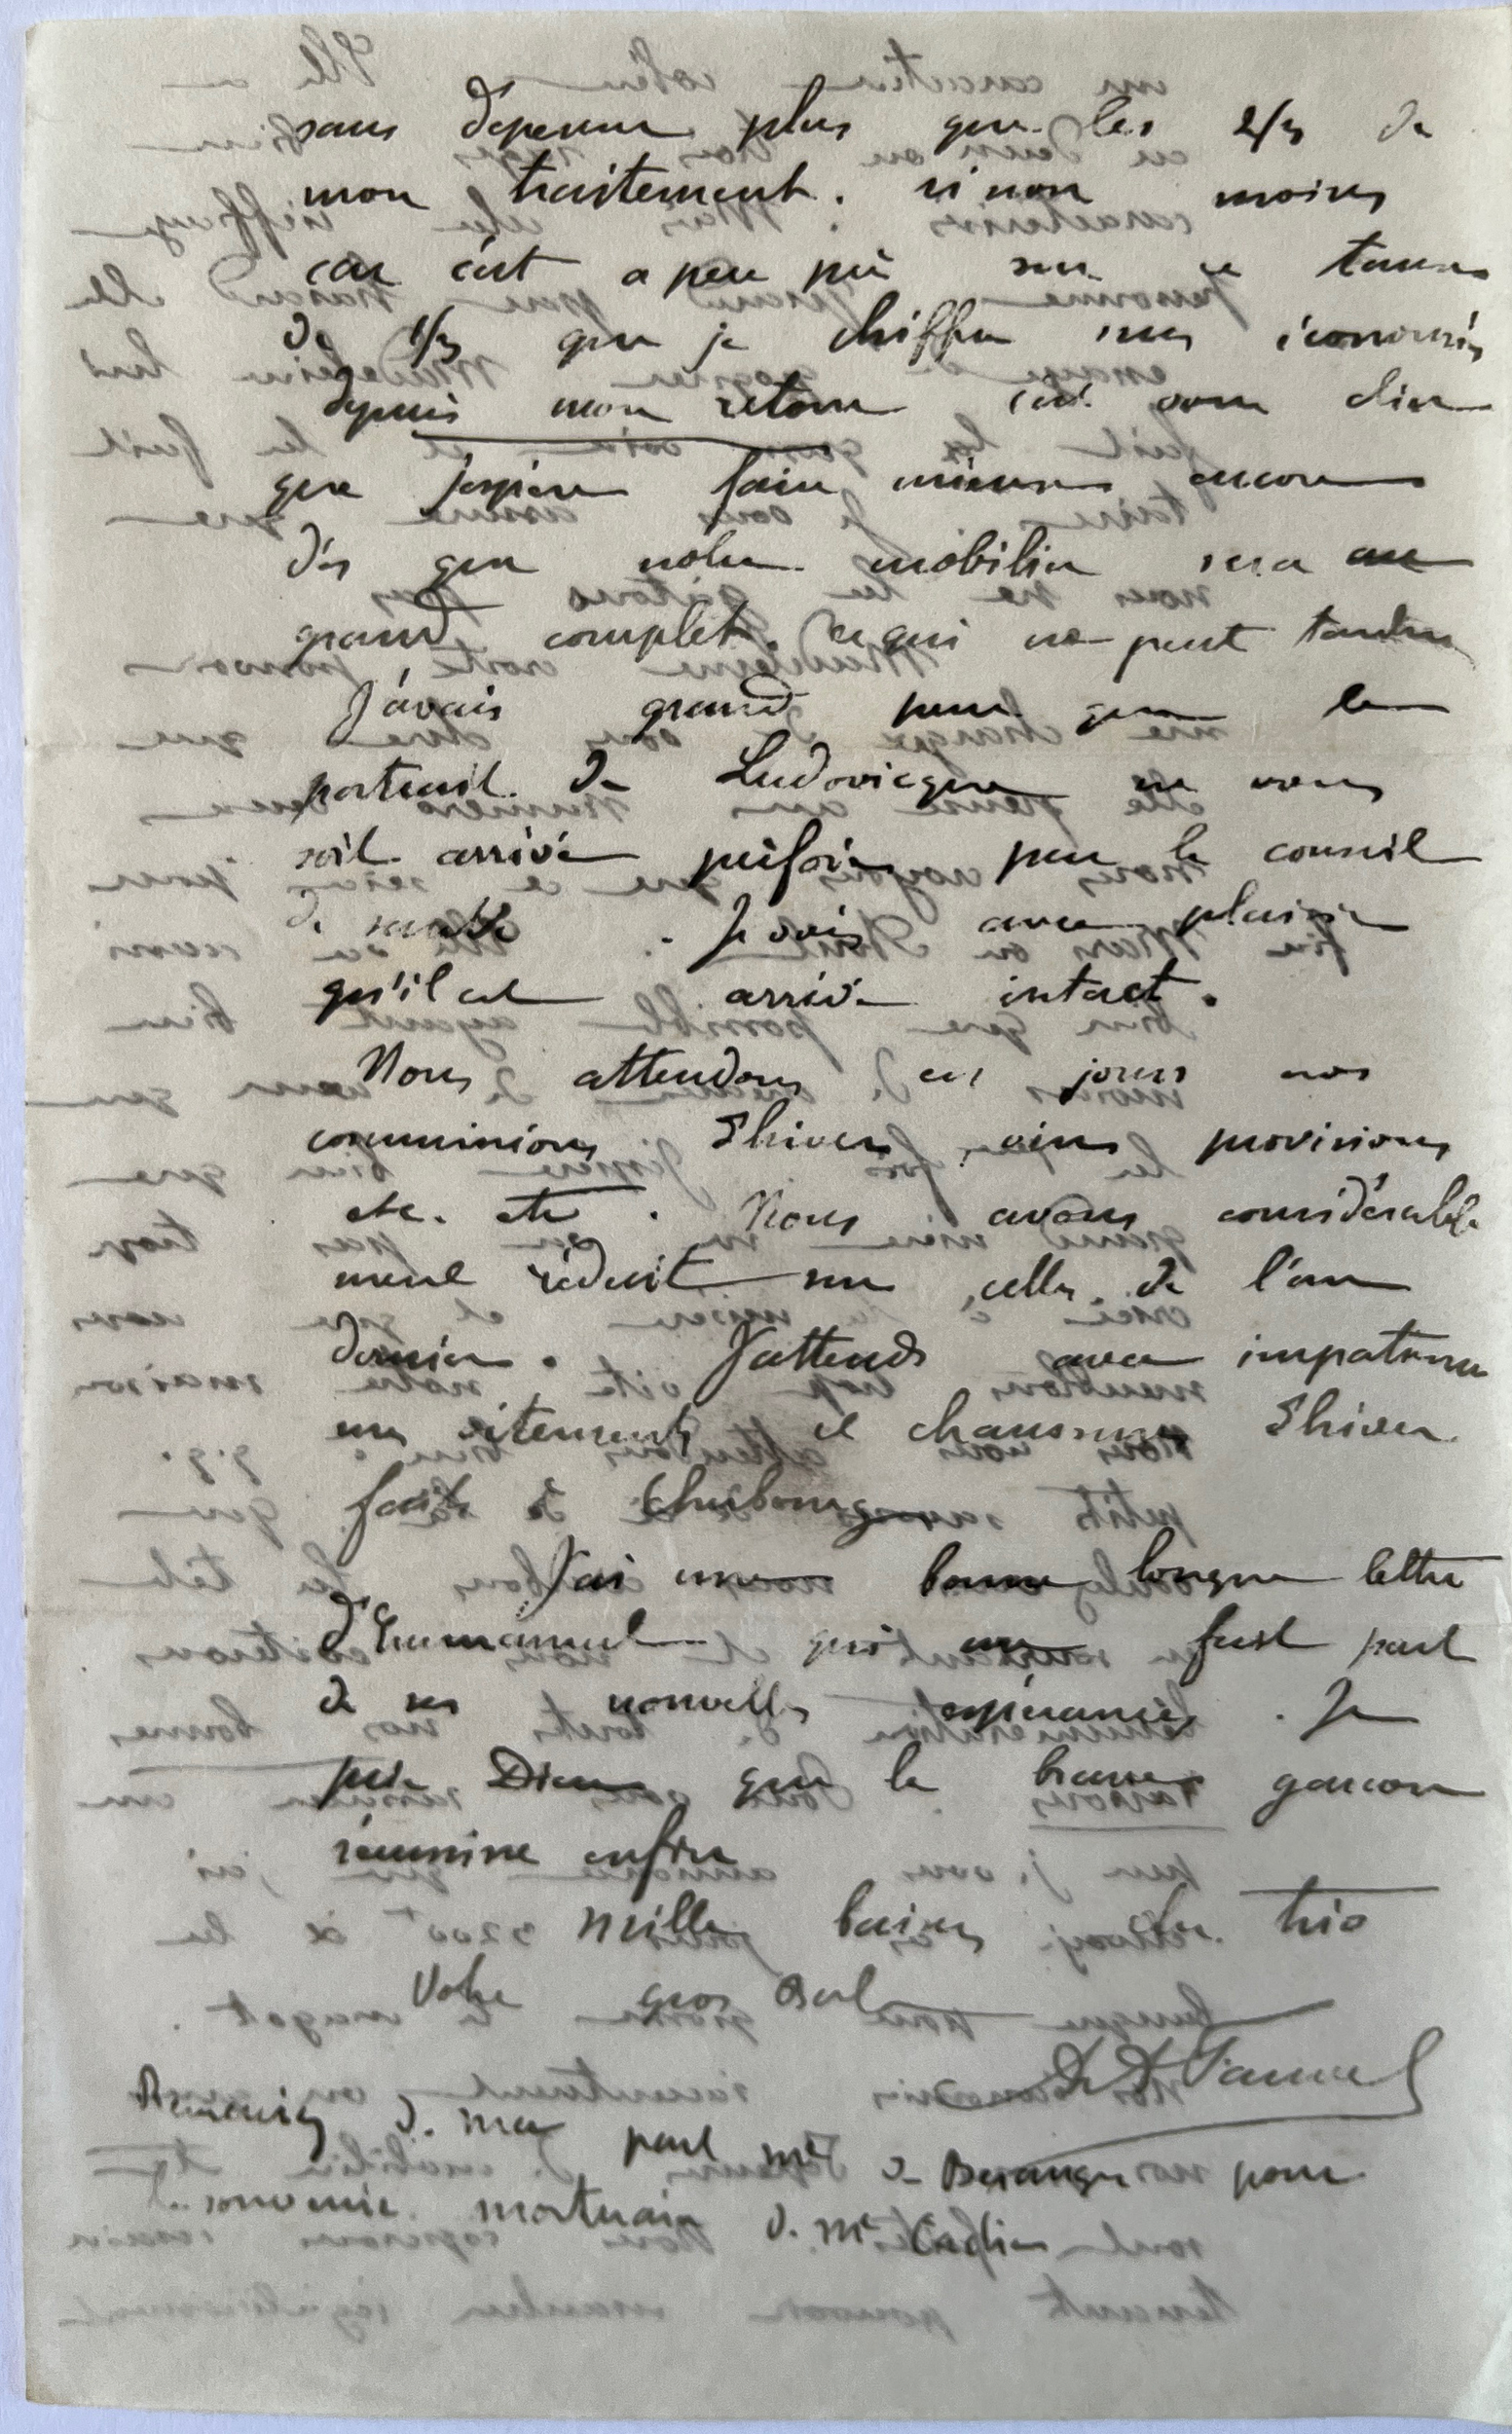 sans dépenser plus que les 2/3 de
mon traitement. sinon moins
car c'est a peu près sur ce taux
de 1/3 que je chiffre mes économies
depuis mon retour c'est vous dire
que j'espère faire mieux encore
dès que notre mobilier sera au
grand complet. ce qui ne peut tarder
J'avais grand peur que le
portrait de Ludovicque ne vous
soit arrivé par le conseil
de . Je vois avec plaisir
qu'il est arrivé intact.
Nous attendons ces jours nos
commissions d'hiver, vins provisions
etc. etc. Nous avons considérable
ment réduit sur celles de l'an
dernier. J'attends avec impatience
mes vêtements et chaussures d'hiver
faits à Cherbourg
J'ai une bonne longue lettre
d'Emmanuel qui me fait part
de ses nouvelles espérances. Je
prie Dieu que le brave garçon
réussisse enfin
Mille baisers du trio
Votre gros
Remerciez de ma part Me de Beranger pour
le souvenir mortuaire de Me